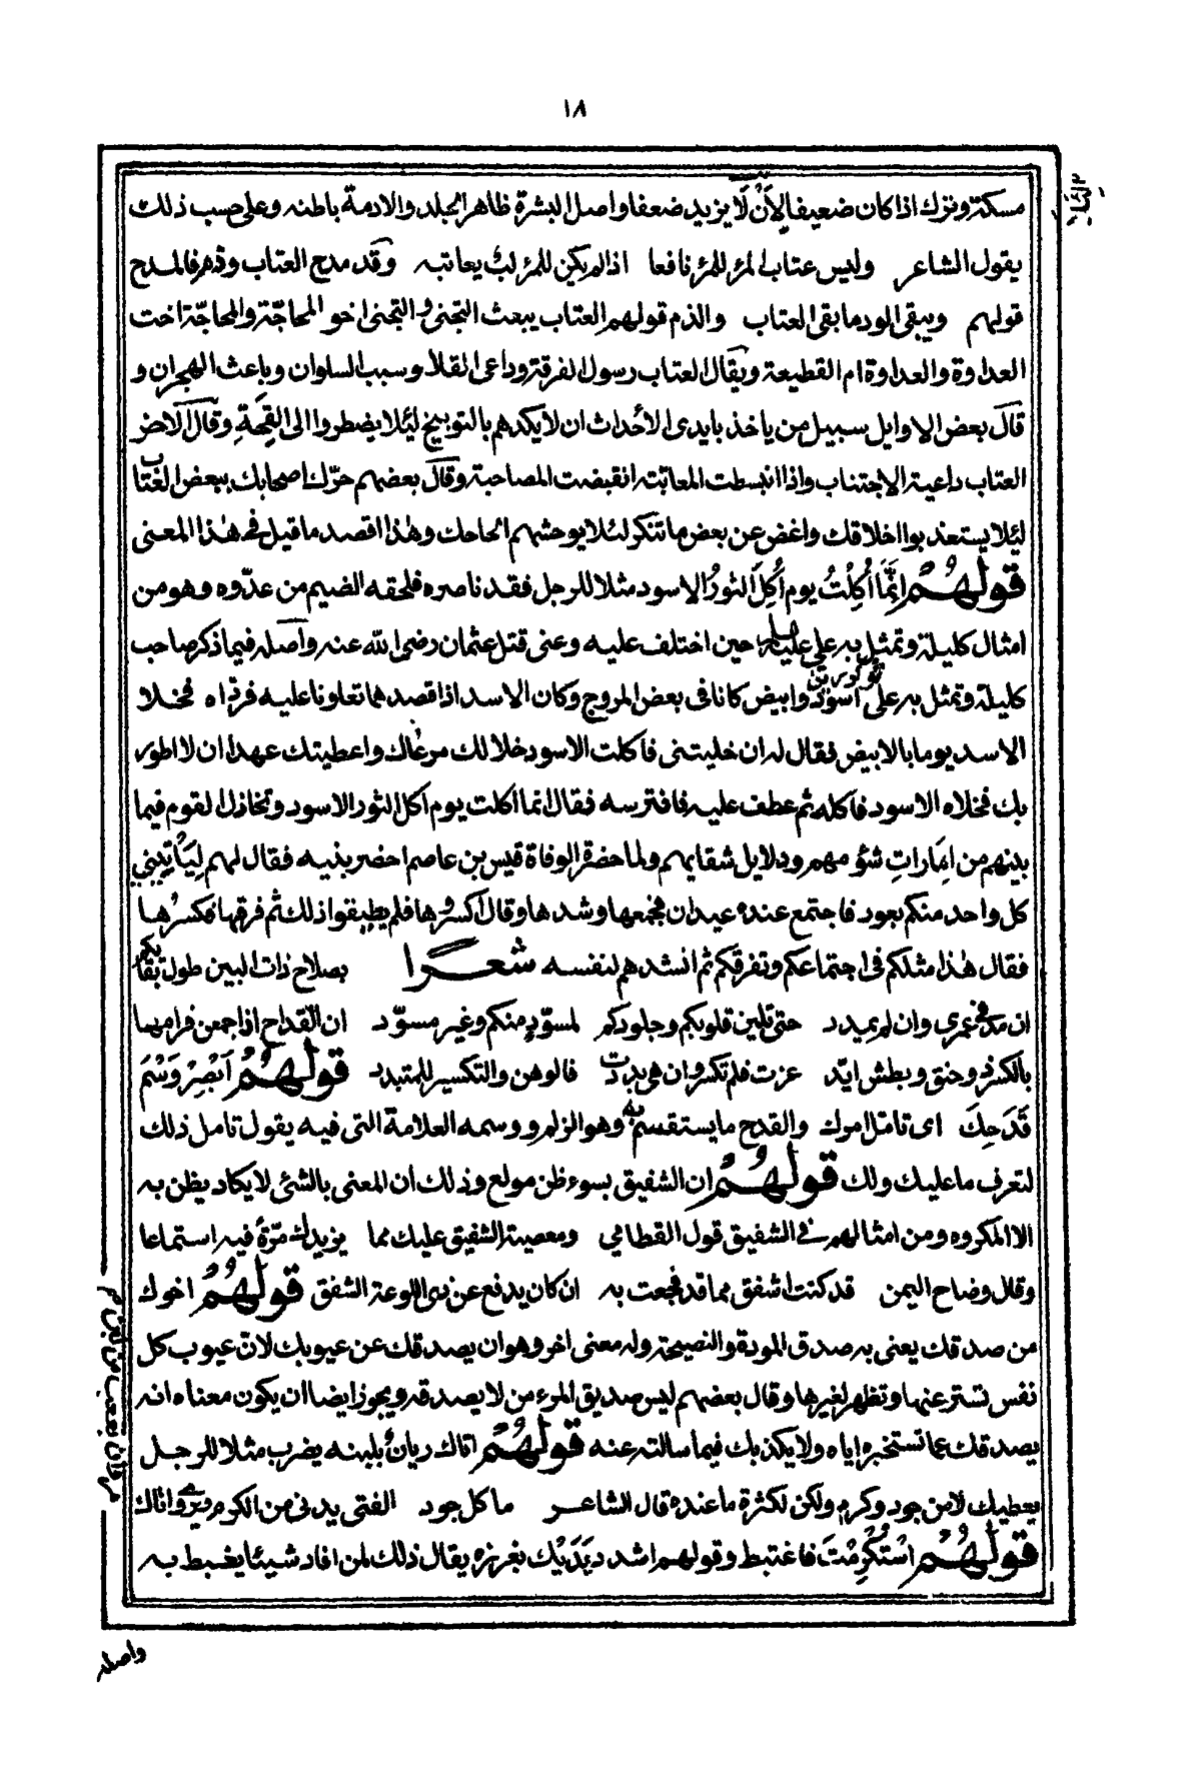 ١٨
مسكة وترك اذا كان ضعيفا لِاَنْ لَا يزيد ضعفا واصل البشرة ظاهر الجلد والادمة باطنه وعلى حسب ذلك
يقول الشاعر وليس عتاب المرء للمرء نافعا اذا لم يكن للمرء لب يعاتبه وقد مدح العتاب وذم فالمدح
قولهم ويبقى الود ما بقى العتاب والذم قولهم العتاب يبعث التجنى و التجنى اخو المحاجّة والمحاجّة اخت
العداوة والعداوة ام القطيعة ويقال العتاب رسول الفرقة وداعى القلا وسبب السلوان وباعث الهجران و
قال بعض الاوايل سبيل من ياخذ بايدى الأحداث ان لا يكدهم بالتوبيخ لئلا يضطروا الى القِحَةِ وقال الآخر
العتاب داعية الاجتناب واذا انبسطت المعاتبة انقبضت المصاحبة وقال بعضهم حرّك اصحابك ببعض العتاب
لئلا يستعذبوا اخلاقك واغض عن بعض ما تنكر لئلا يوحشهم الحاحك وهٰذا اقصد ما قيل فى هٰذا المعنى
قولهُمْ اِنَّمَا اُكِلْتُ يوم اُكِلَ الثورُ الاسود مثلا للرجل فقد ناصره فلحقه الضيم من عدّوه وهو من
امثال كليلة وتمثل به على عليه حين اختلف عليه وعنى قتل عثمان رضى الله عنه واصله فيما ذكر صاحب
كليلة وتمثل به على ثورين اسود وابيض كانا فى بعض المروج وكان الاسد اذا قصدهما تعاونا عليه فردّاه فخلا
الاسد يوما بالابيض فقال له ان خليتنى فاكلت الاسود خلا لك مرعاك واعطيتك عهدا ان لا اطور
بك فخلاه الاسود فاكله ثم عطف عليه فافترسه فقال انما اكلت يوم اكل الثور الاسود وتخاذل القوم فيما
بينهم من اِمَاراتِ شؤمهم ودلايل شقايهم ولما حضرة الوفاة قيس بن عاصم احضر بنيه فقال لهم لِيَأتِيني
كل واحد منكم بعود فاجتمع عنده عيدان فجمعها وشدها وقال اكسروها فلم يطيقوا ذلك ثم فرقها فكسرُها
فقال هٰذا مثلكم فى اجتماعكم وتفرقكم ثم انشدهم لنفسه شعرا بصلاح ذات البين طول بقائكم
ان مد فى عمرى وان لم يمدد حتى تلين قلوبكم وجلودكم لمسوّدٍ منكم وغير مسوّد ان القداح اذا جمعن فرامها
بالكسر ذو حنق وبطش ايّد عزت فلم تكسر وان هى بددت فالوهن والتكسير للمتبدد قولهُمُ اَبْصِرْ وَسْمَ
قَدَحِكَ اى تامل امرك والقدح ما يستقسم به وهو الزلم ووسمه العلامة التى فيه يقول تامل ذلك
لتعرف ما عليك ولك قولهُمْ ان الشفيق بسوء ظن مولع وذلك ان المعنى بالشئ لا يكاد يظن به
الا المكروه ومن امثالهم فى الشفيق قول القطامي ومعصية الشفيق عليك مما يزيدك مرّةً فيه استماعا
وقال وضاح اليمن قد كنت اشفق مما قد فجعت به ان كان يدفع عن ذى اللوعة الشفق قولهُمُ اخوك
من صدقك يعنى به صدق المودة والنصيحة وله معنى اخر وهو ان يصدقك عن عيوبك لان عيوب كل
نفس تستتر عنها وتظهر لغيرها وقال بعضهم ليس صديق المرء من لا يصدقه ويجوز ايضا ان يكون معناه انه
يصدقك عما تستخبره اياه ولا يكذبك فيما سالته عنه قولهُمْ اتاك ريانُ بلبنه يضرب مثلا للرجل
يعطيك لا من جود وكرم ولكن لكثرة ما عنده قال الشاعر ما كل جود الفتى يدنى من الكرم واتاك
قولهُمْ اسْتكْرمْتَ فاغتبط وقولهم اشدد يَدَيْك بغرزه يقال ذلك لمن افاد شيئا يغبط به
واصله